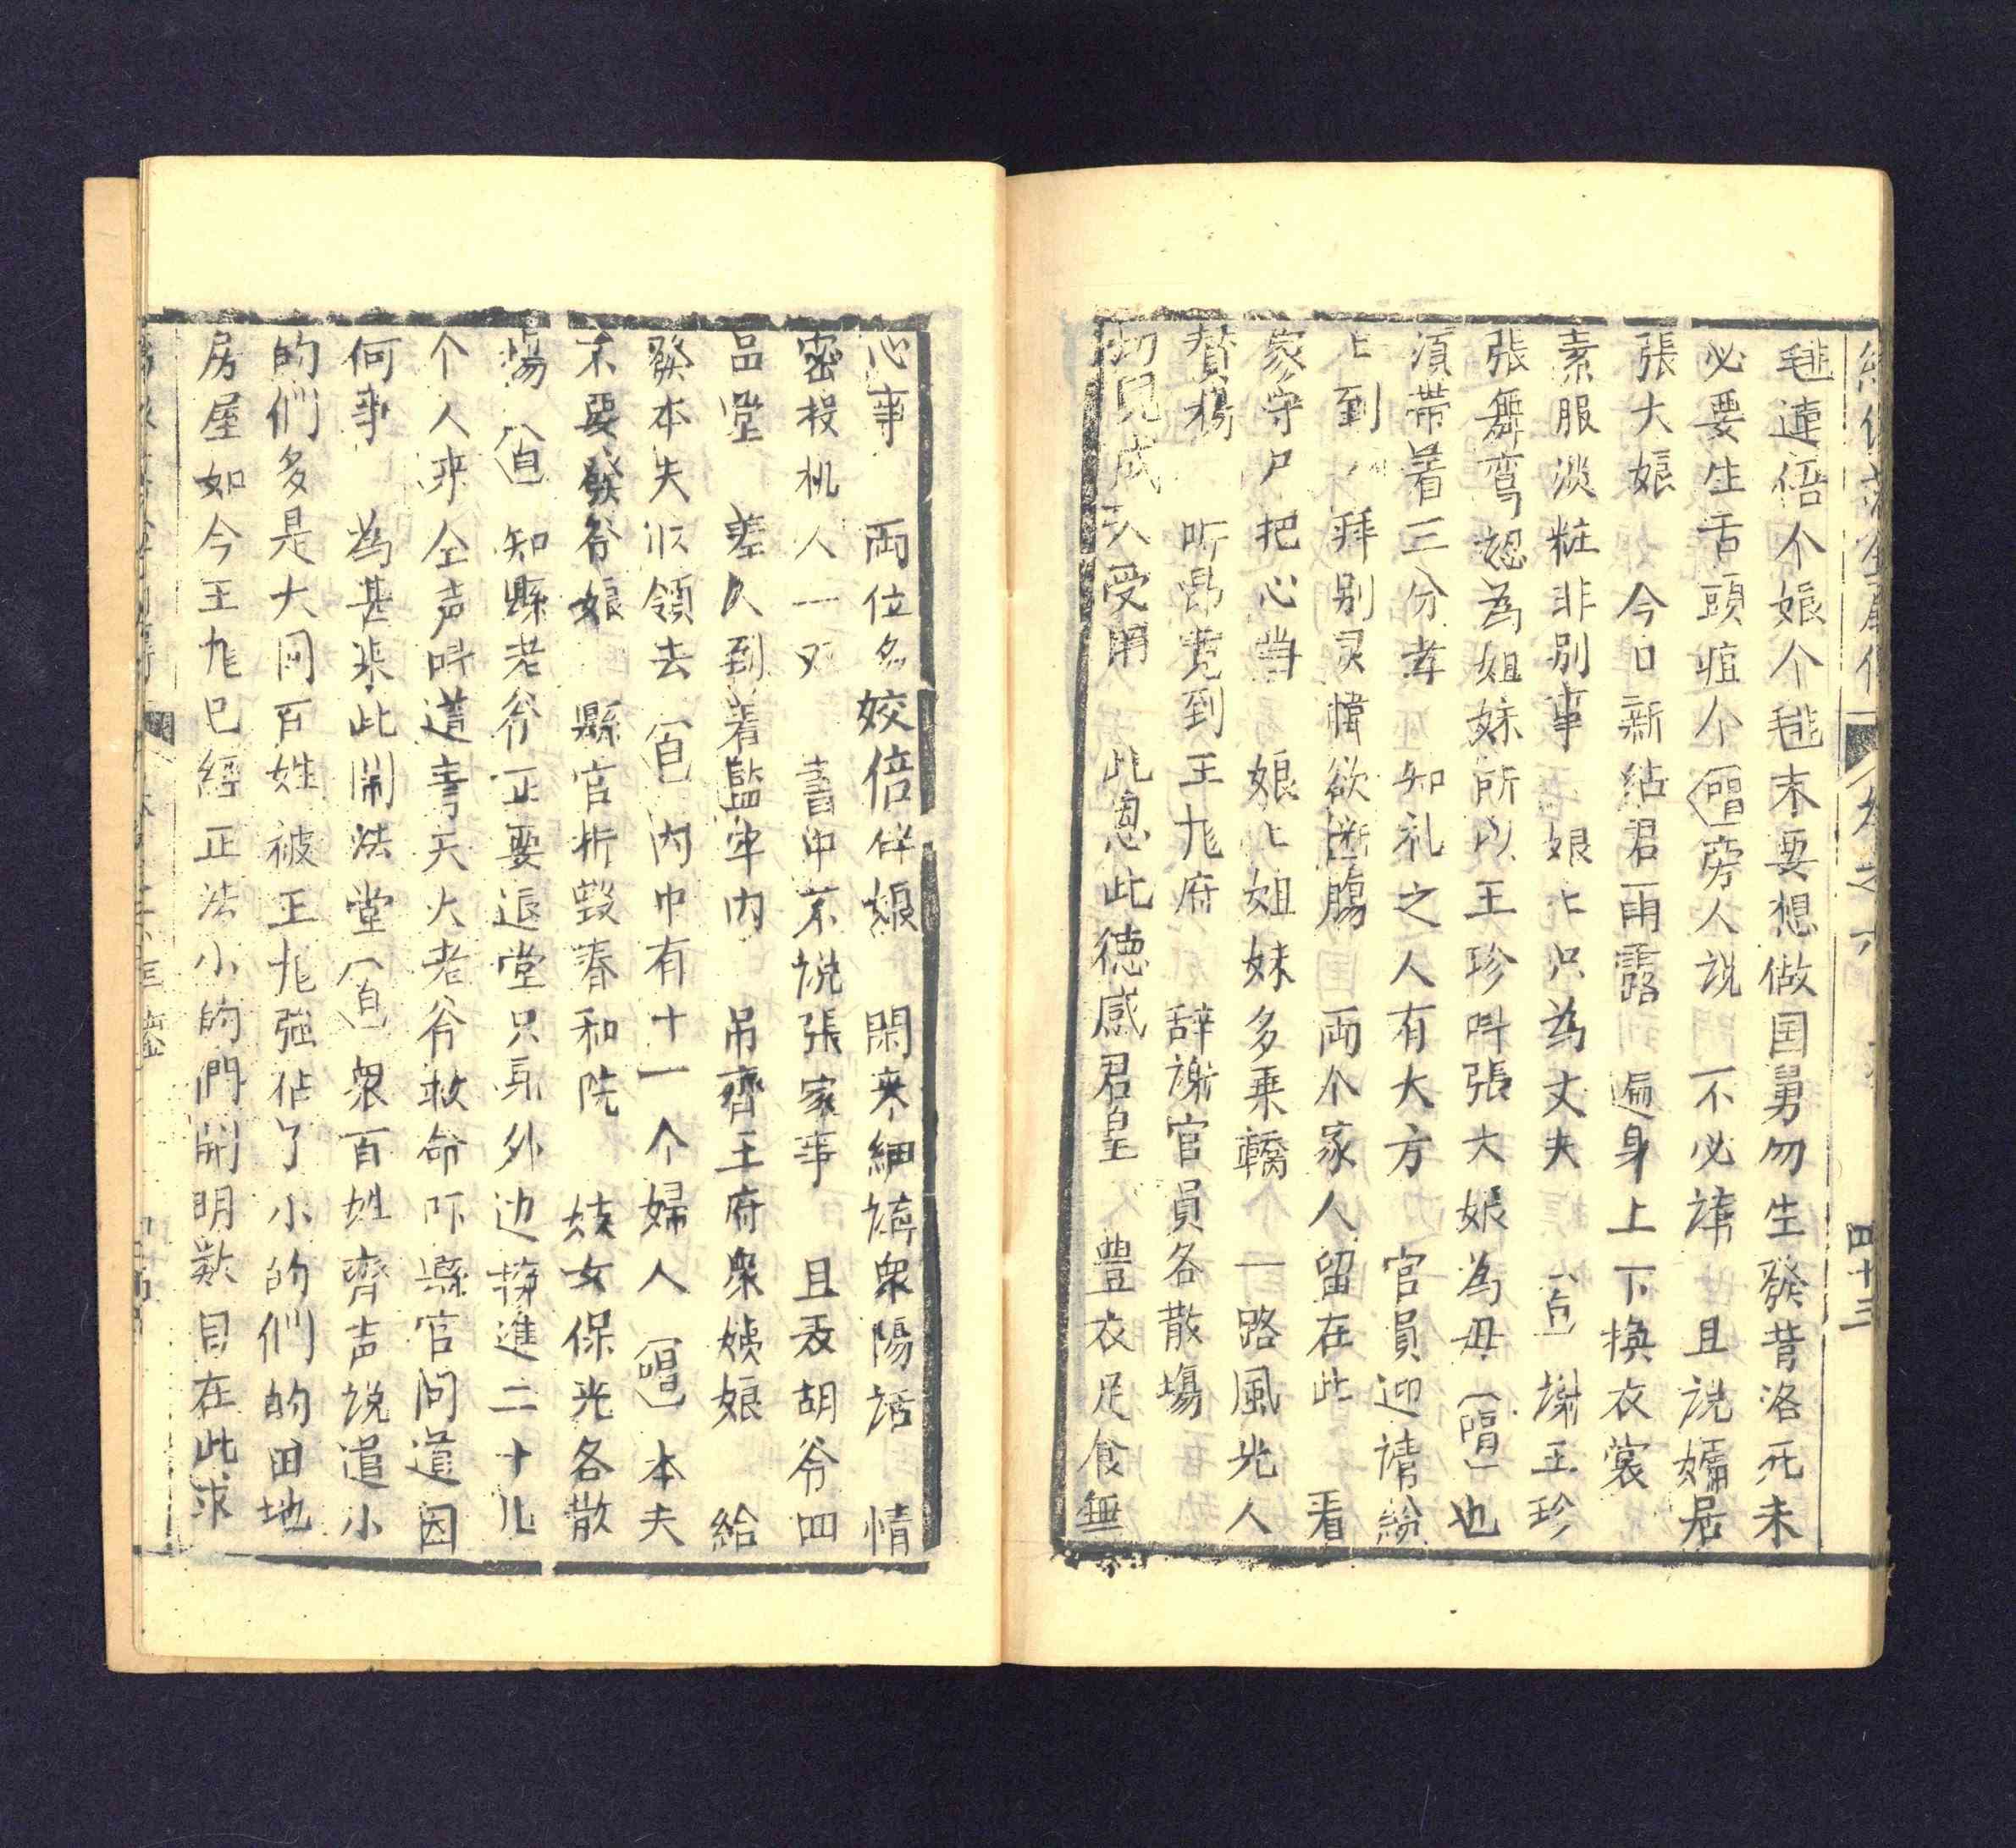 卷之六 四十三
毴達倍个娘个毴未要想做国舅勿生發昔洛死未
必要生舌頭疽个（唱）旁人說 不必講 且說孀居
張大娘 今日新沾君雨露 遍身上下換衣裳
素服淡粧非别事 娘匕只為丈夫 （白）謝王珍
張舞弯認為姐妹所以王珍呌張大娘為毋（唱）也
湏帶着三分孝 知礼之人有大方 官員迎請紛
匕到 拜别灵幃欲断腸 両个家人留在此 看
家守尸把心当 娘匕姐妹多乗轎 一路風光人
賛揚 听昂竟到王九府 辞謝官員各散塲
切見成 受用 此恩此德感君皇 豊衣足食無
心事 両位多姣倍伴娘 閑來細講衆陽話 情
密投机人一双 書中不說張家事 且表胡爷四
品堂 差人到着監牢内 吊齊王府衆嬌娘 給
發本夫收領去（白）内中有十一个婦人（唱）本夫
不要發爷娘 縣官折毀春和院 妓女保光各散
塲（白）知縣老爷正要退堂只見外边擁進二十几
个人來仝声呌道青天大老爷救命吓縣官问道因
何事 為甚来此鬧法堂（白）衆百姓齊声说道小
的們多是大同百姓被王九強佔了小的們的田地
房屋如今王九已經正法小的們開明数目在此求